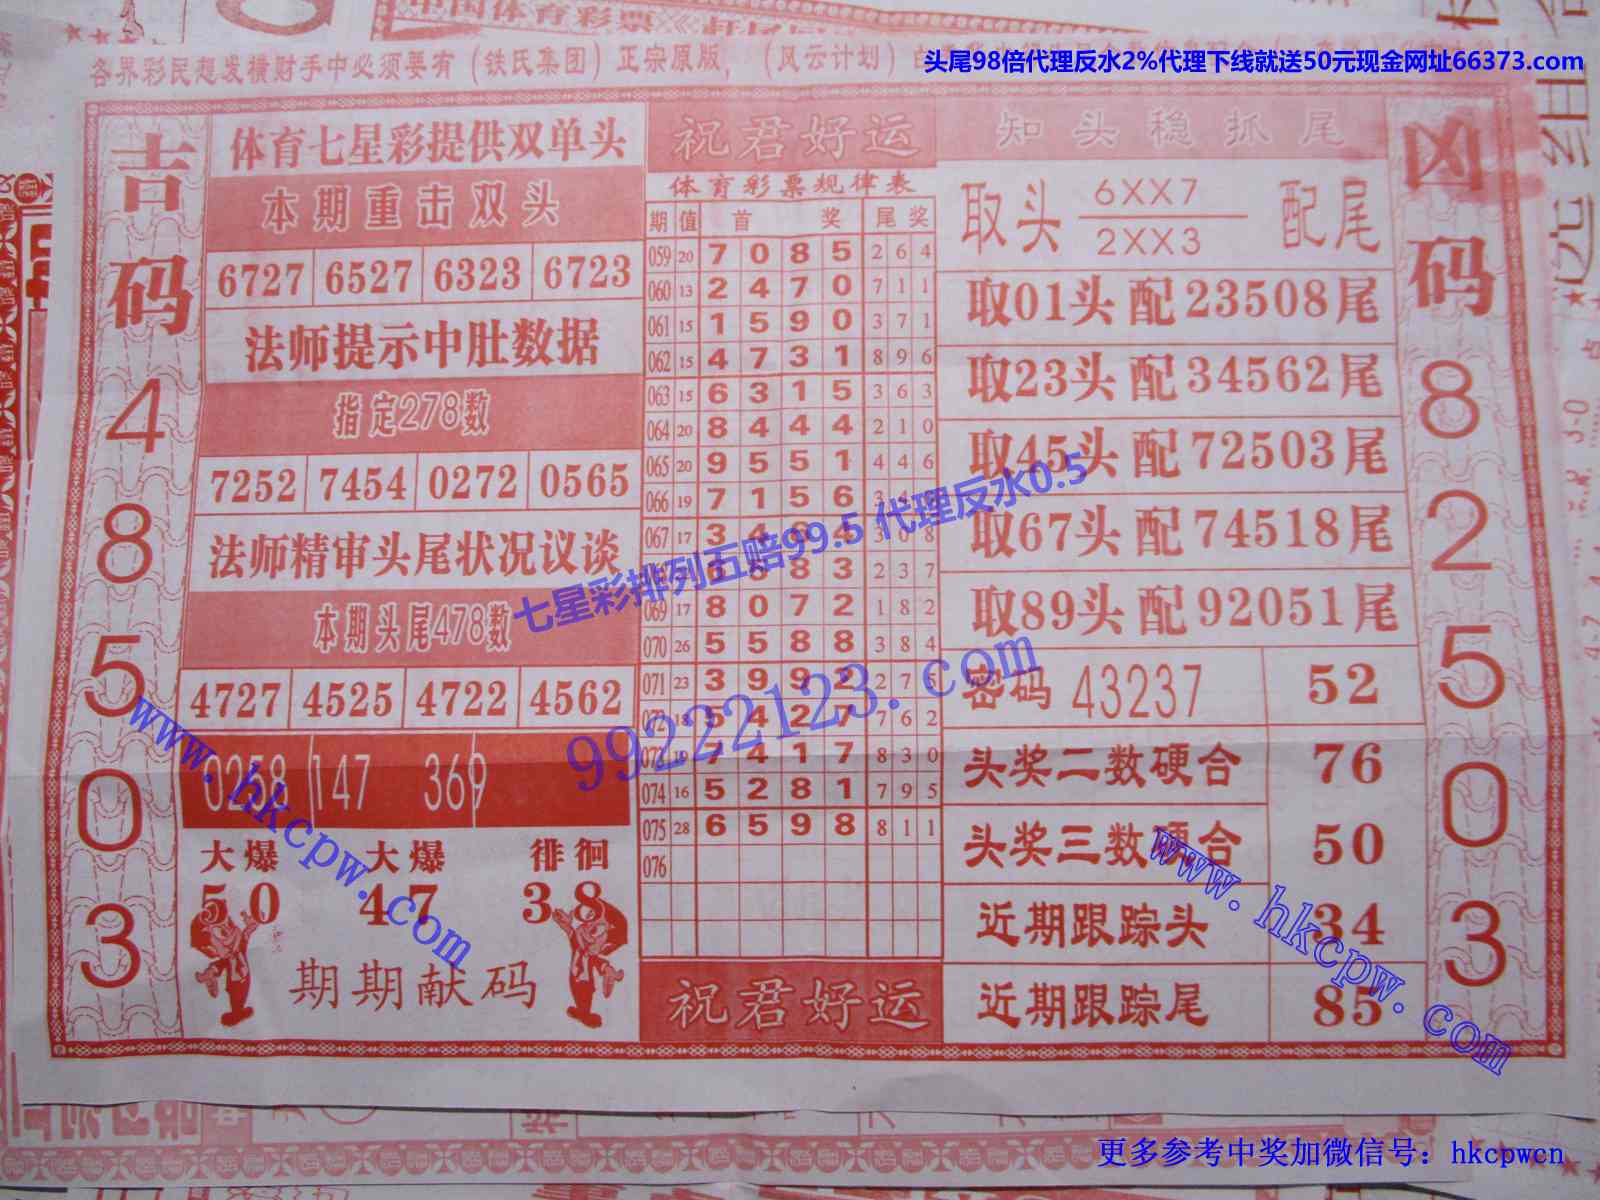 中国体育彩票
头尾98倍代理反水2%代理下线就送50元现金网址66373.com
各界彩民想发横财手中必须要有（铁氏集团）正宗原版，（风云计划）
吉码
48503
体育七星彩提供双单头
本期重击双头
6727 6527 6323 6723
法师提示中肚数据
指定278数
7252 7454 0272 0565
法师精审头尾状况议谈
本期头尾478数
4727 4525 4722 4562
0258 147 369
大爆 大爆 徘徊
50 47 38
期期献码
祝君好运
体育彩票规律表
期 值 首奖 尾奖
059 20 7 0 8 5 2 6 4
060 13 2 4 7 0 7 1 1
061 15 1 5 9 0 3 7 1
062 15 4 7 3 1 8 9 6
063 15 6 3 1 5 3 6 3
064 20 8 4 4 4 2 1 0
065 20 9 5 5 1 4 4 6
066 19 7 1 5 6 3
067 17 3 4 3 0 8
8 3 2 3 7
069 17 8 0 7 2 1 8 2
070 26 5 5 8 8 3 8 4
071 23 3 9 9 2 2 7 5
072 18 5 4 2 7 7 6 2
073 19 7 4 1 7 8 3 0
074 16 5 2 8 1 7 9 5
075 28 6 5 9 8 8 1 1
076
祝君好运
知头稳抓尾
取头 6XX7 配尾
2XX3
取01头 配23508尾
取23头 配34562尾
取45头 配72503尾
取67头 配74518尾
取89头 配92051尾
密码 43237 52
头奖二数硬合 76
头奖三数硬合 50
近期跟踪头 34
近期跟踪尾 85
凶码
82503
七星彩排列五赔99.5 代理反水0.5
99222123.com
www.hkcpw.com
www.hkcpw.com
更多参考中奖加微信号：hkcpwcn